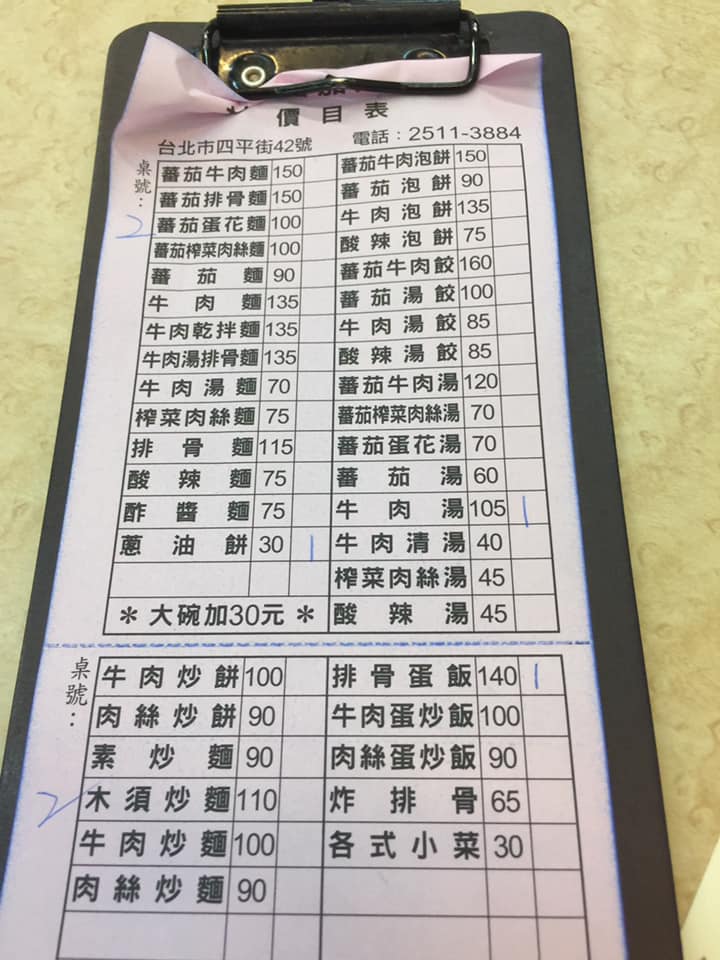 價目表
台北市四平街42號 電話：2511-3884
桌號：2
蕃茄牛肉麵 150 蕃茄牛肉泡餅 150
蕃茄排骨麵 150 蕃茄泡餅 90
蕃茄蛋花麵 100 牛肉泡餅 135
蕃茄榨菜肉絲麵 100 酸辣泡餅 75
蕃茄麵 90 蕃茄牛肉餃 160
牛肉麵 135 蕃茄湯餃 100
牛肉乾拌麵 135 牛肉湯餃 85
牛肉湯排骨麵 135 酸辣湯餃 85
牛肉湯麵 70 蕃茄牛肉湯 120
榨菜肉絲麵 75 蕃茄榨菜肉絲湯 70
排骨麵 115 蕃茄蛋花湯 70
酸辣麵 75 蕃茄湯 60
酢醬麵 75 牛肉湯 105 1
蔥油餅 30 1 牛肉清湯 40
榨菜肉絲湯 45
＊大碗加30元＊ 酸辣湯 45
桌號：2
牛肉炒餅 100 排骨蛋飯 140 1
肉絲炒餅 90 牛肉蛋炒飯 100
素炒麵 90 肉絲蛋炒飯 90
木須炒麵 110 炸排骨 65
牛肉炒麵 100 各式小菜 30
肉絲炒麵 90